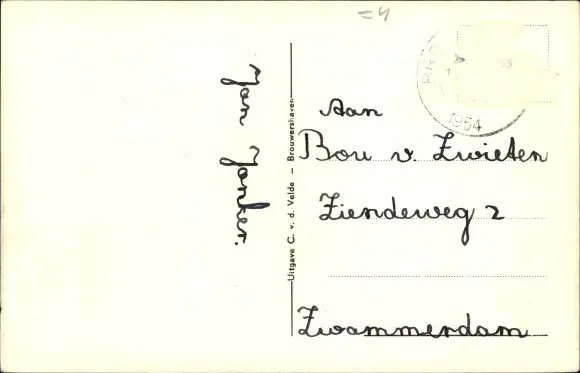 =4
1954
Jan Jonker.
Uitgave C. v. d. Velde – Brouwershaven
Aan
Bou v. Zwieten
Ziendeweg 2
Zwammerdam